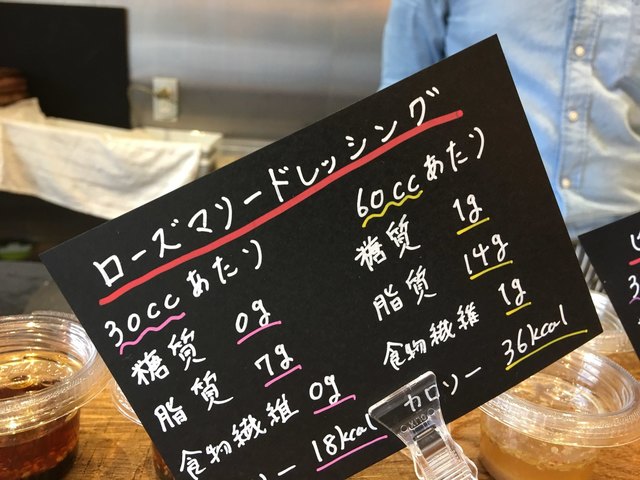 ローズマリードレッシング
30ccあたり
糖質 0g
脂質 7g
食物繊維 0g
リー 18kcal
60ccあたり
糖質 1g
脂質 14g
食物繊維 1g
カロリー 36kcal